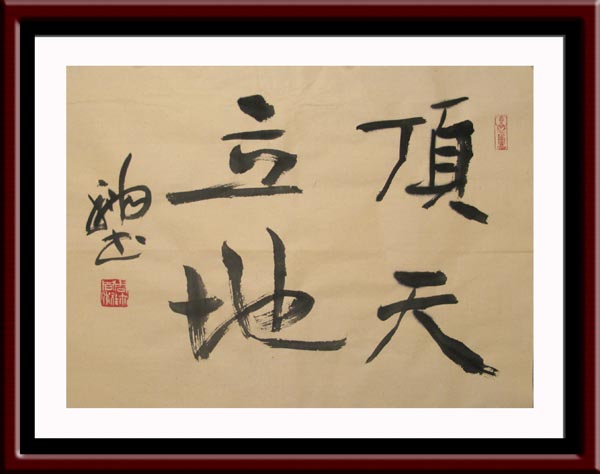 頂天
立地